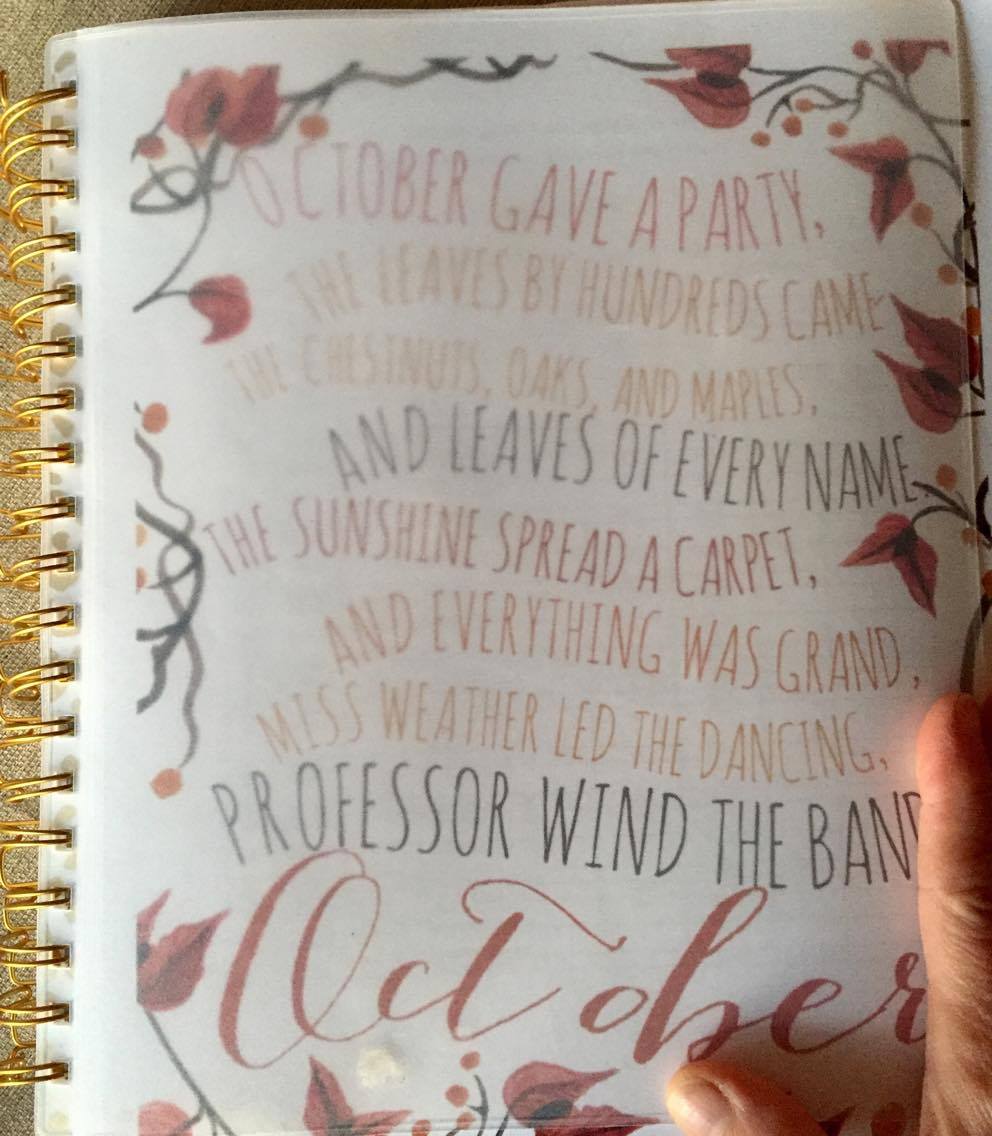 OCTOBER GAVE A PARTY,
THE LEAVES BY HUNDREDS CAME
THE CHESTNUTS, OAKS, AND MAPLES,
AND LEAVES OF EVERY NAME
THE SUNSHINE SPREAD A CARPET,
AND EVERYTHING WAS GRAND,
MISS WEATHER LED THE DANCING,
PROFESSOR WIND THE BAND
October